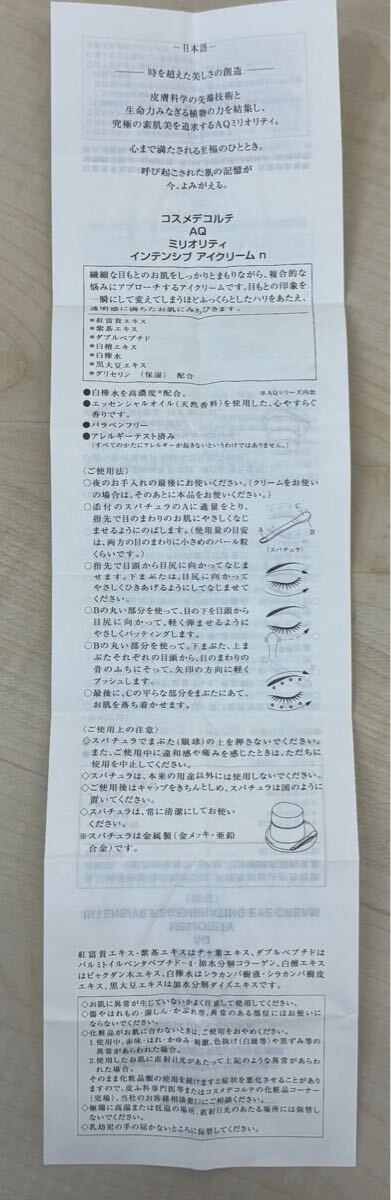 ―日本語―
時を超えた美しさの創造
皮膚科学の先端技術と
生命力みなぎる植物の力を結集し、
究極の素肌美を追求するAQミリオリティ。
心まで満たされる至福のひととき。
呼び起こされた肌の記憶が
今、よみがえる。
コスメデコルテ
AQ
ミリオリティ
インテンシブ アイクリーム n
繊細な目もとのお肌をしっかりとまもりながら、複合的な
悩みにアプローチするアイクリームです。目もとの印象を
一瞬にして変えてしまうほどふっくらとしたハリをあたえ、
透明感に満ちたお肌にみちびきます。
*紅富貴エキス
*紫茶エキス
*ダブルペプチド
*白檀エキス
*白樺水
*黒大豆エキス
*グリセリン (保湿) 配合
●白樺水を高濃度*配合。 ※AQシリーズ内比
●エッセンシャルオイル(天然香料)を使用した、心やすらぐ
香りです。
●パラベンフリー
●アレルギーテスト済み
(すべてのかたにアレルギーが起きないというわけではありません。)
〈ご使用法〉
○夜のお手入れの最後にお使いください。(クリームをお使い
の場合は、そのあとに本品をお使いください。)
○添付のスパチュラのAに適量をとり、
指先で目のまわりのお肌にやさしくなじ
ませるようにのばします。(使用量の目安
は、両方の目のまわりに小さめのパール粒
くらいです。)
A
C
B
(スパチュラ)
○指先で目頭から目尻に向かってなじま
せます。下まぶたは、目尻に向かって
やさしくひきあげるようにしてなじませて
ください。
○Bの丸い部分を使って、目の下を目頭から
目尻に向かって、軽く弾ませるように
やさしくパッティングします。
○Bの丸い部分を使って、下まぶた、上ま
ぶたそれぞれの目頭から、目のまわりの
骨のふちにそって、矢印の方向に軽く
プッシュします。
○最後に、Cの平らな部分をまぶたにあて、
お肌を落ち着かせます。
〈ご使用上の注意〉
◇スパチュラでまぶた(眼球)の上を押さないでください。
また、ご使用中に違和感や痛みを感じたときは、ただちに
使用を中止してください。
◇スパチュラは、本来の用途以外には使用しないでください。
◇ご使用後はキャップをきちんとしめ、スパチュラは図のように
置いてください。
◇スパチュラは、常に清潔にしてお使い
ください。
※スパチュラは金属製(金メッキ・亜鉛
合金)です。
紅富貴エキス・紫茶エキスはチャ葉エキス、ダブルペプチドは
パルミトイルペンタペプチド-4・加水分解コラーゲン、白檀エキス
はビャクダン木エキス、白樺水はシラカンバ樹液・シラカンバ樹皮
エキス、黒大豆エキスは加水分解ダイズエキスです。
◇お肌に異常が生じていないかよく注意して使用してください。
◇傷やはれもの・湿しん・かぶれ等、異常のある部位にはお使いに
ならないでください。
◇化粧品がお肌に合わないときは、ご使用をおやめください。
1.使用中、赤味・はれ・かゆみ・刺激、色抜け(白斑等)や黒ずみ等の
異常があらわれた場合。
2.使用したお肌に直射日光があたって上記のような異常があらわ
れた場合。
そのまま化粧品類の使用を続けますと症状を悪化させることがあり
ますので、皮ふ科専門医等またはコスメデコルテの化粧品コーナー
(売場)、当社のお客様相談窓口にご相談ください。
◇極端に高温または低温の場所、直射日光のあたる場所には保管し
ないでください。
◇乳幼児の手の届かないところに保管してください。